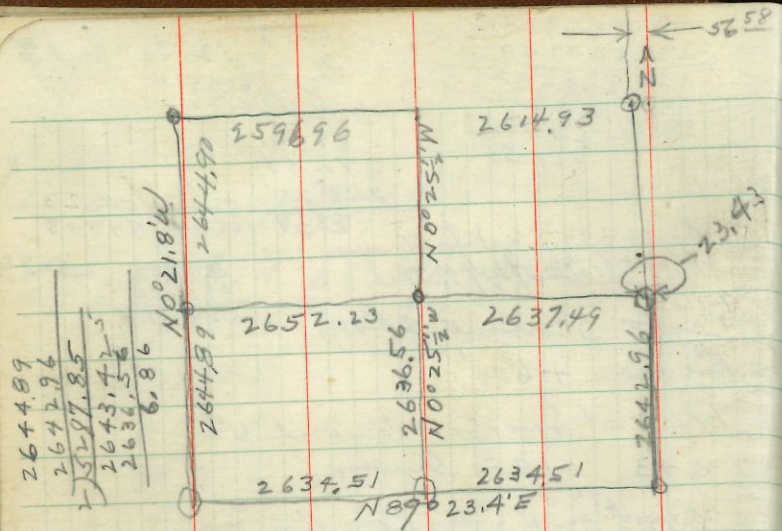 56 58
N
2596.96
2614.93
N 0° 21.8' W
2644.90
N 0° 25½' W
23.43
2652.23
2637.49
2644.89
2636.56
N 0° 25½' W
2642.96
2634.51
2634.51
N 89° 23.4' E
2644.89
2642.96
2)5287.85
2643.42⁵
2636.56
6.86